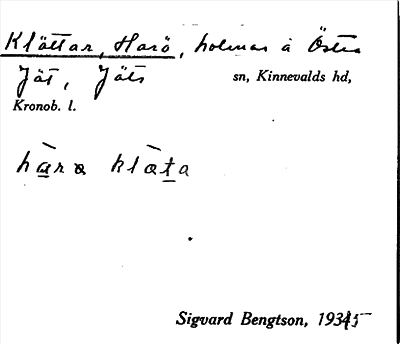 Klöttar, Harö, holmar å Östra
Jät, Jäts sn, Kinnevalds hd,
Kronob. l.
hàra klòta
Sigvard Bengtson, 1935